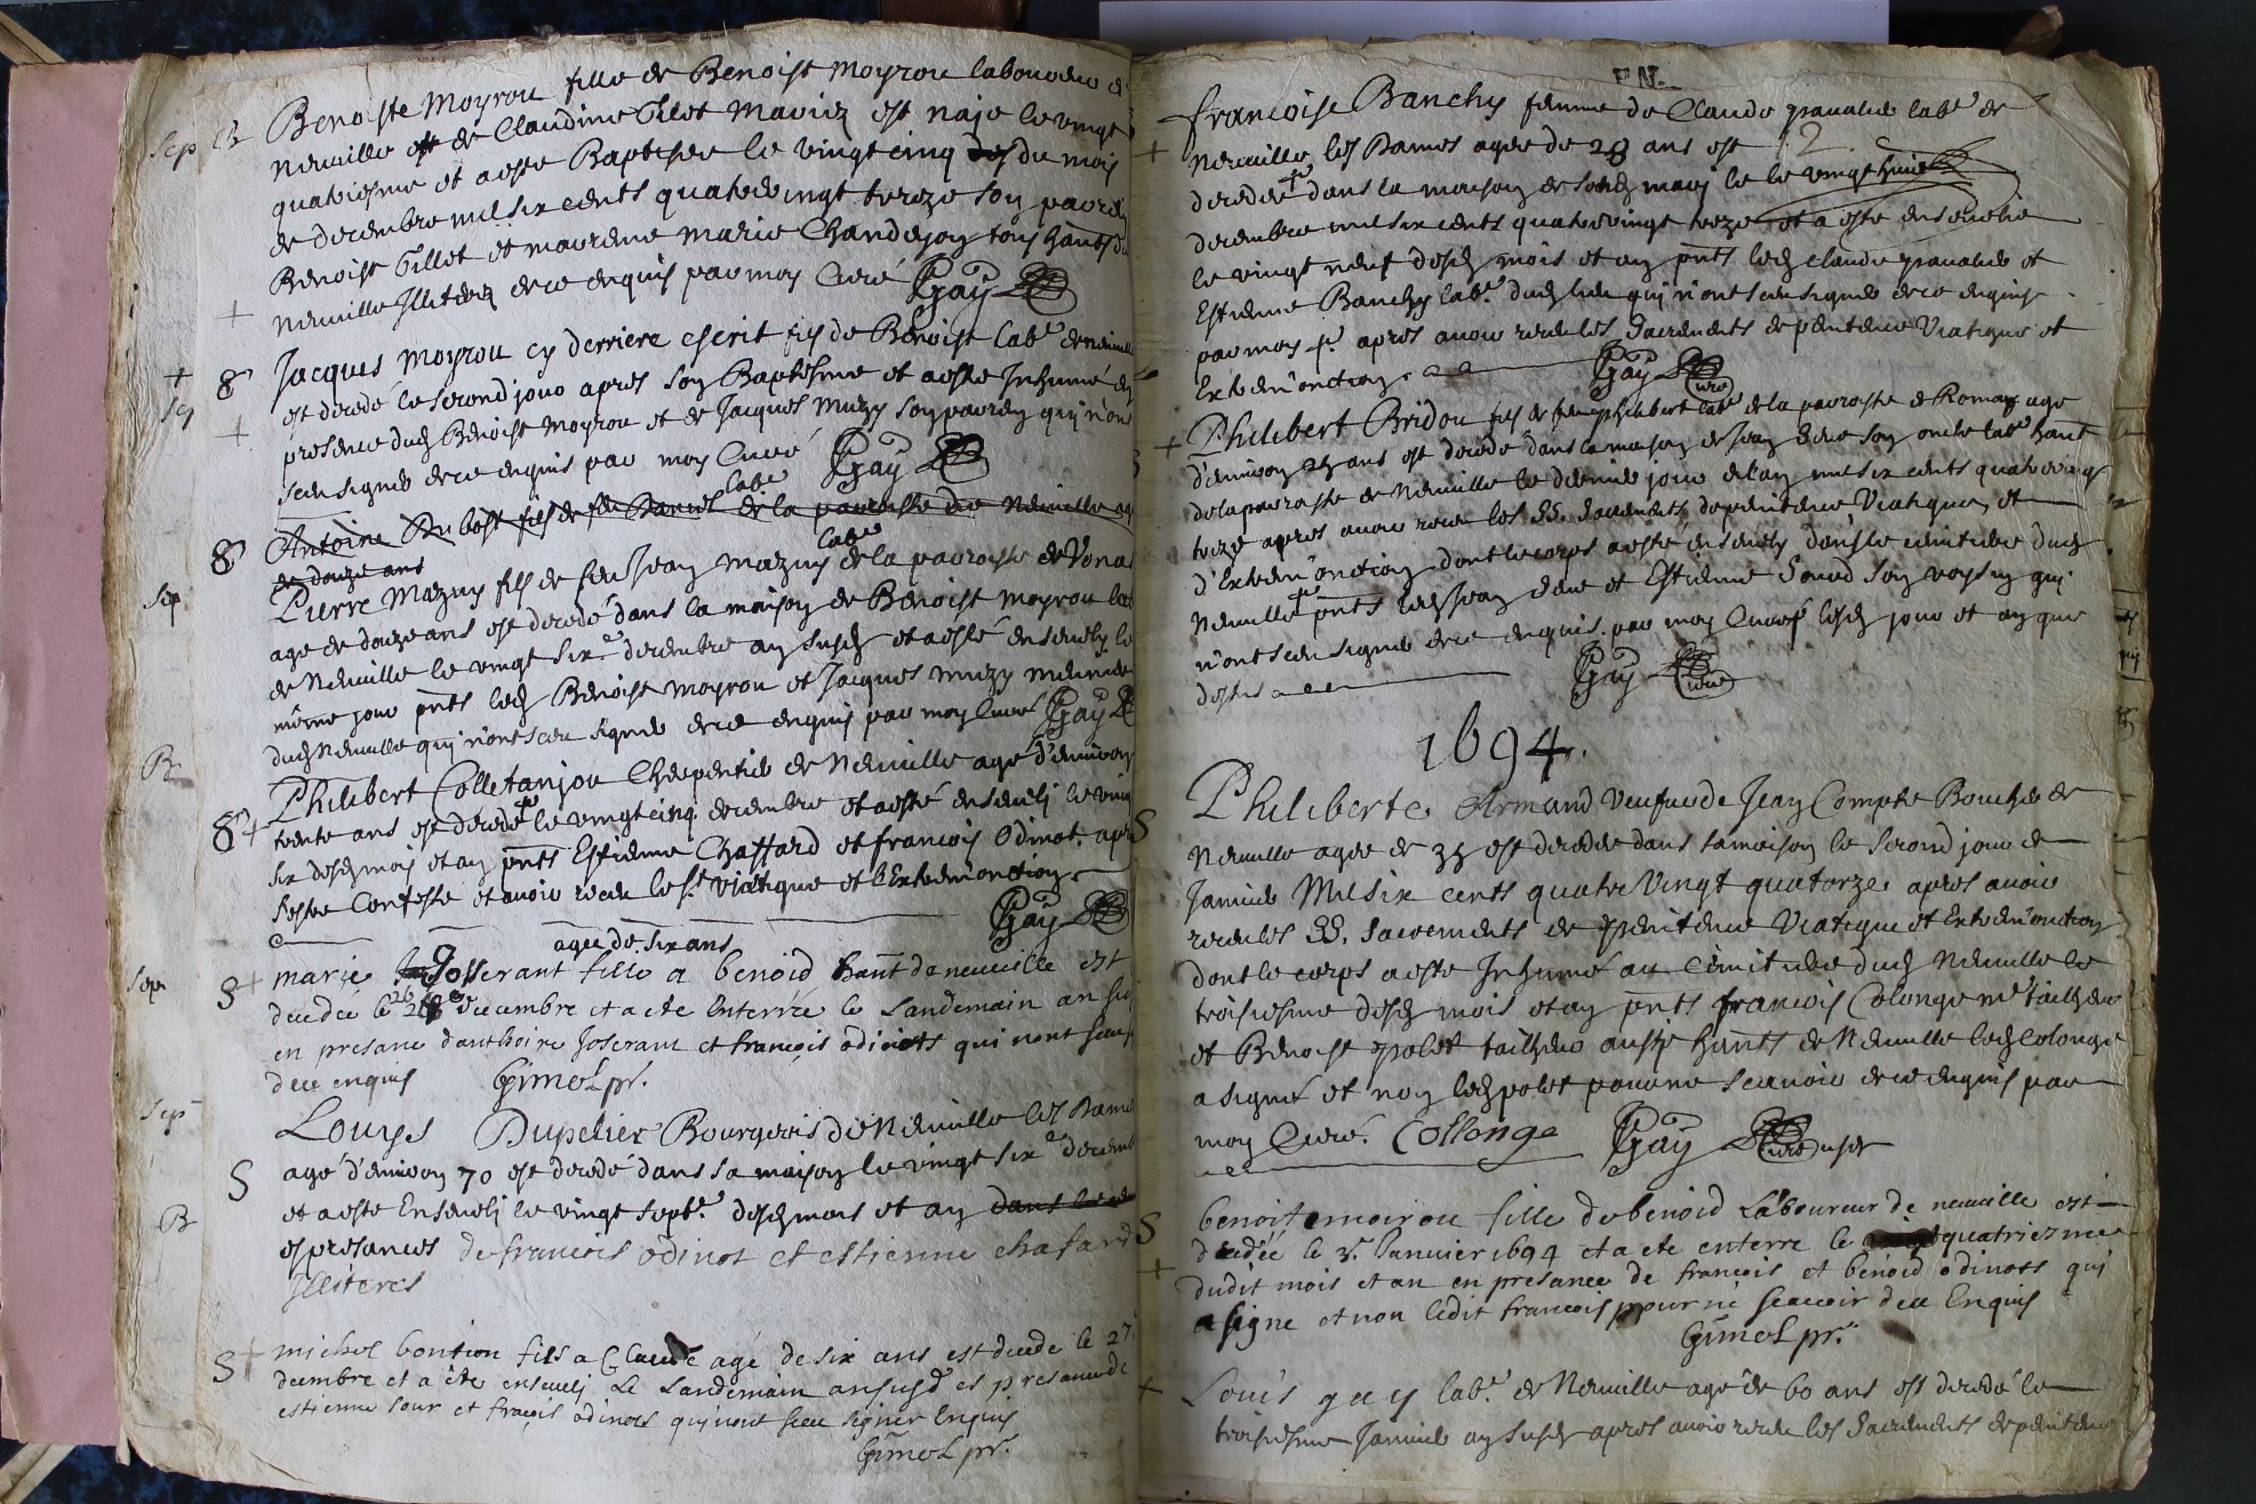 Sep B Benoiste Moyrou fille de Benoist Moyrou laboureur de
Neuuille et de Claudine Tilet Mariez est naje le vingt
quatriesme et a esté Baptisee le vingt cinq du mois
de decembre mil six cents quatrevingt treize son parrein
Benoist Tillet et marrene Marie Chandejon tous hants du
Neuuille Illiterez de ce enquis par moy Curé Gay
Jacques Moyrou cy derriere escrit fils de Benoist lab.r de neuuille
est decedé le second jour apres son Baptesme et a esté Inhumé en
presence dud Benoist Moyrou et de Jacques Muzy son parrein qui n'ont
sceu signer de ce enquis par moy Curé Gay
Antoine Dubost fils de feu Daniel labr de la parroisse de Neuuille agé
de douze ans
Pierre Mazuy fils de feu Jean Mazuy labr de la parroisse de Vonas
age de douze ans est decedé dans la maison de Benoist Moyrou lab
de Neuuille le vingt six.e decembre an susd et a esté enseuely le
même jour pnts led Benoist Moyrou et Jacques Muzy
dud Neuuille qui n'ont sceu signer de ce enquis par moy Curé Gay
Philibert Colletanjou Charpentier de Neuuille agé d'enuiron
trente ans est decedé le vingt cinq decembre et a esté enseueli le vingt
six desd mois et an pnts Estienne Chaffard et francois Odinot apres
s'estre Confesse et auoir receu le s.t viatique et l'Extrem'onction
Gay
agee de six ans
marie Josserant fille a benoid hant de neuuille est
decedée le 26 decembre et a ete enterrée le landemain an susd
en presance danthoine Joserant et françois odinots qui nont sceu
dece enquis Gimel pr.
Louys Dupelier Bourgeois de Neuuille les Dames
agé d'enuiron 70 est decedé dans sa maison le vingt six.e decemb
et a esté Enseueli le vingt sept.e desd mois et an dans le
es presances de francois odinot et estienne chafard
Illiteres
michel bontion fils a Claude agé de six ans est decede le 27
decembre et a ête enseueli le landemain an susd es presance de
estienne sour et françois odinots qui nont sceu signer Enquis
Gimel pr.
francoise Banchy femme de Claude grauallier lab.r de
Neuuille les Dames agée de 28 ans est
decedée dans la maison de sond mary le le vingt huit
decembre mil six cents quatrevingt treze et a esté enseuelie
le vingt neuf desd mois et an pnts led Claude grauallier et
Estienne Banchy lab.r dud lieu qui n'ont sceu signer de ce enquis
par moy apres auoir receu les Sacrements de penitence Viatique et
Extrem'onction Gay curé
Philibert Bridou fils de feu philibert labr de la parroisse de Romans age
d'enuiron ans est decedé dans la maison de Jean son oncle labr hant
de la parroisse de Neuuille le dernier jour de l'an mil six cents quatrevingt
treze apres auoir receu les SS. Sacrements de penitence Viatique, et
d'Extrem'onction dont le corps a esté enseuely dans le cimitiere dud
Neuuille pnts led Jean et Estienne son voysin qui
n'ont sceu signer de ce enquis par moy Curé lesd jour et an que
dessus Gay curé
1694.
Philiberte Armand Veufue de Jean Compte Boucher de
Neuuille agée de 35 est decedee dans sa maison le second jour de
Januier Mil six cents quatre Vingt quatorze apres auoir
receu les SS. Sacrements de penitence Viatique et Extrem'onction
dont le corps a esté Inhumé au Cimitiere dud Neuuille le
troisiesme desd mois et an pnts francois Colonge me tailheur
et Benoist polet tailheur aussy hants de Neuuille led Colonge
a signé et non led polet pour ne scauoir de ce enquis par
moy Curé. Collonge Gay curé susd
benoite moirou fille de benoid Laboureur de neuuille est
decedée le 3e Januier 1694 et a ete enterre le quatriesme
dudit mois et an en presance de françois et benoid odinots qui
a signe et non ledit francois pour ne scauoir dece Enquis
Gimel pr.
Louis guy lab.r de Neuuille agé de 60 ans est decedé le
troisiesme Januier an susd apres auoir receu les Sacrements de penitence